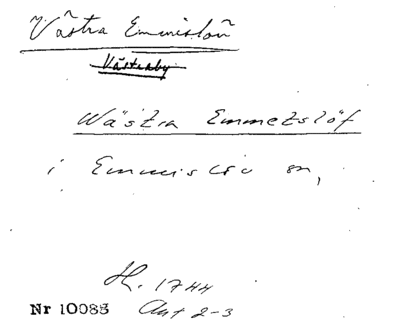 Västra Emmislöv
Västraby
Wästra Emmetslöf
i Emmislöv sn,
H. 1744
Nr 10083 Akt 2-3